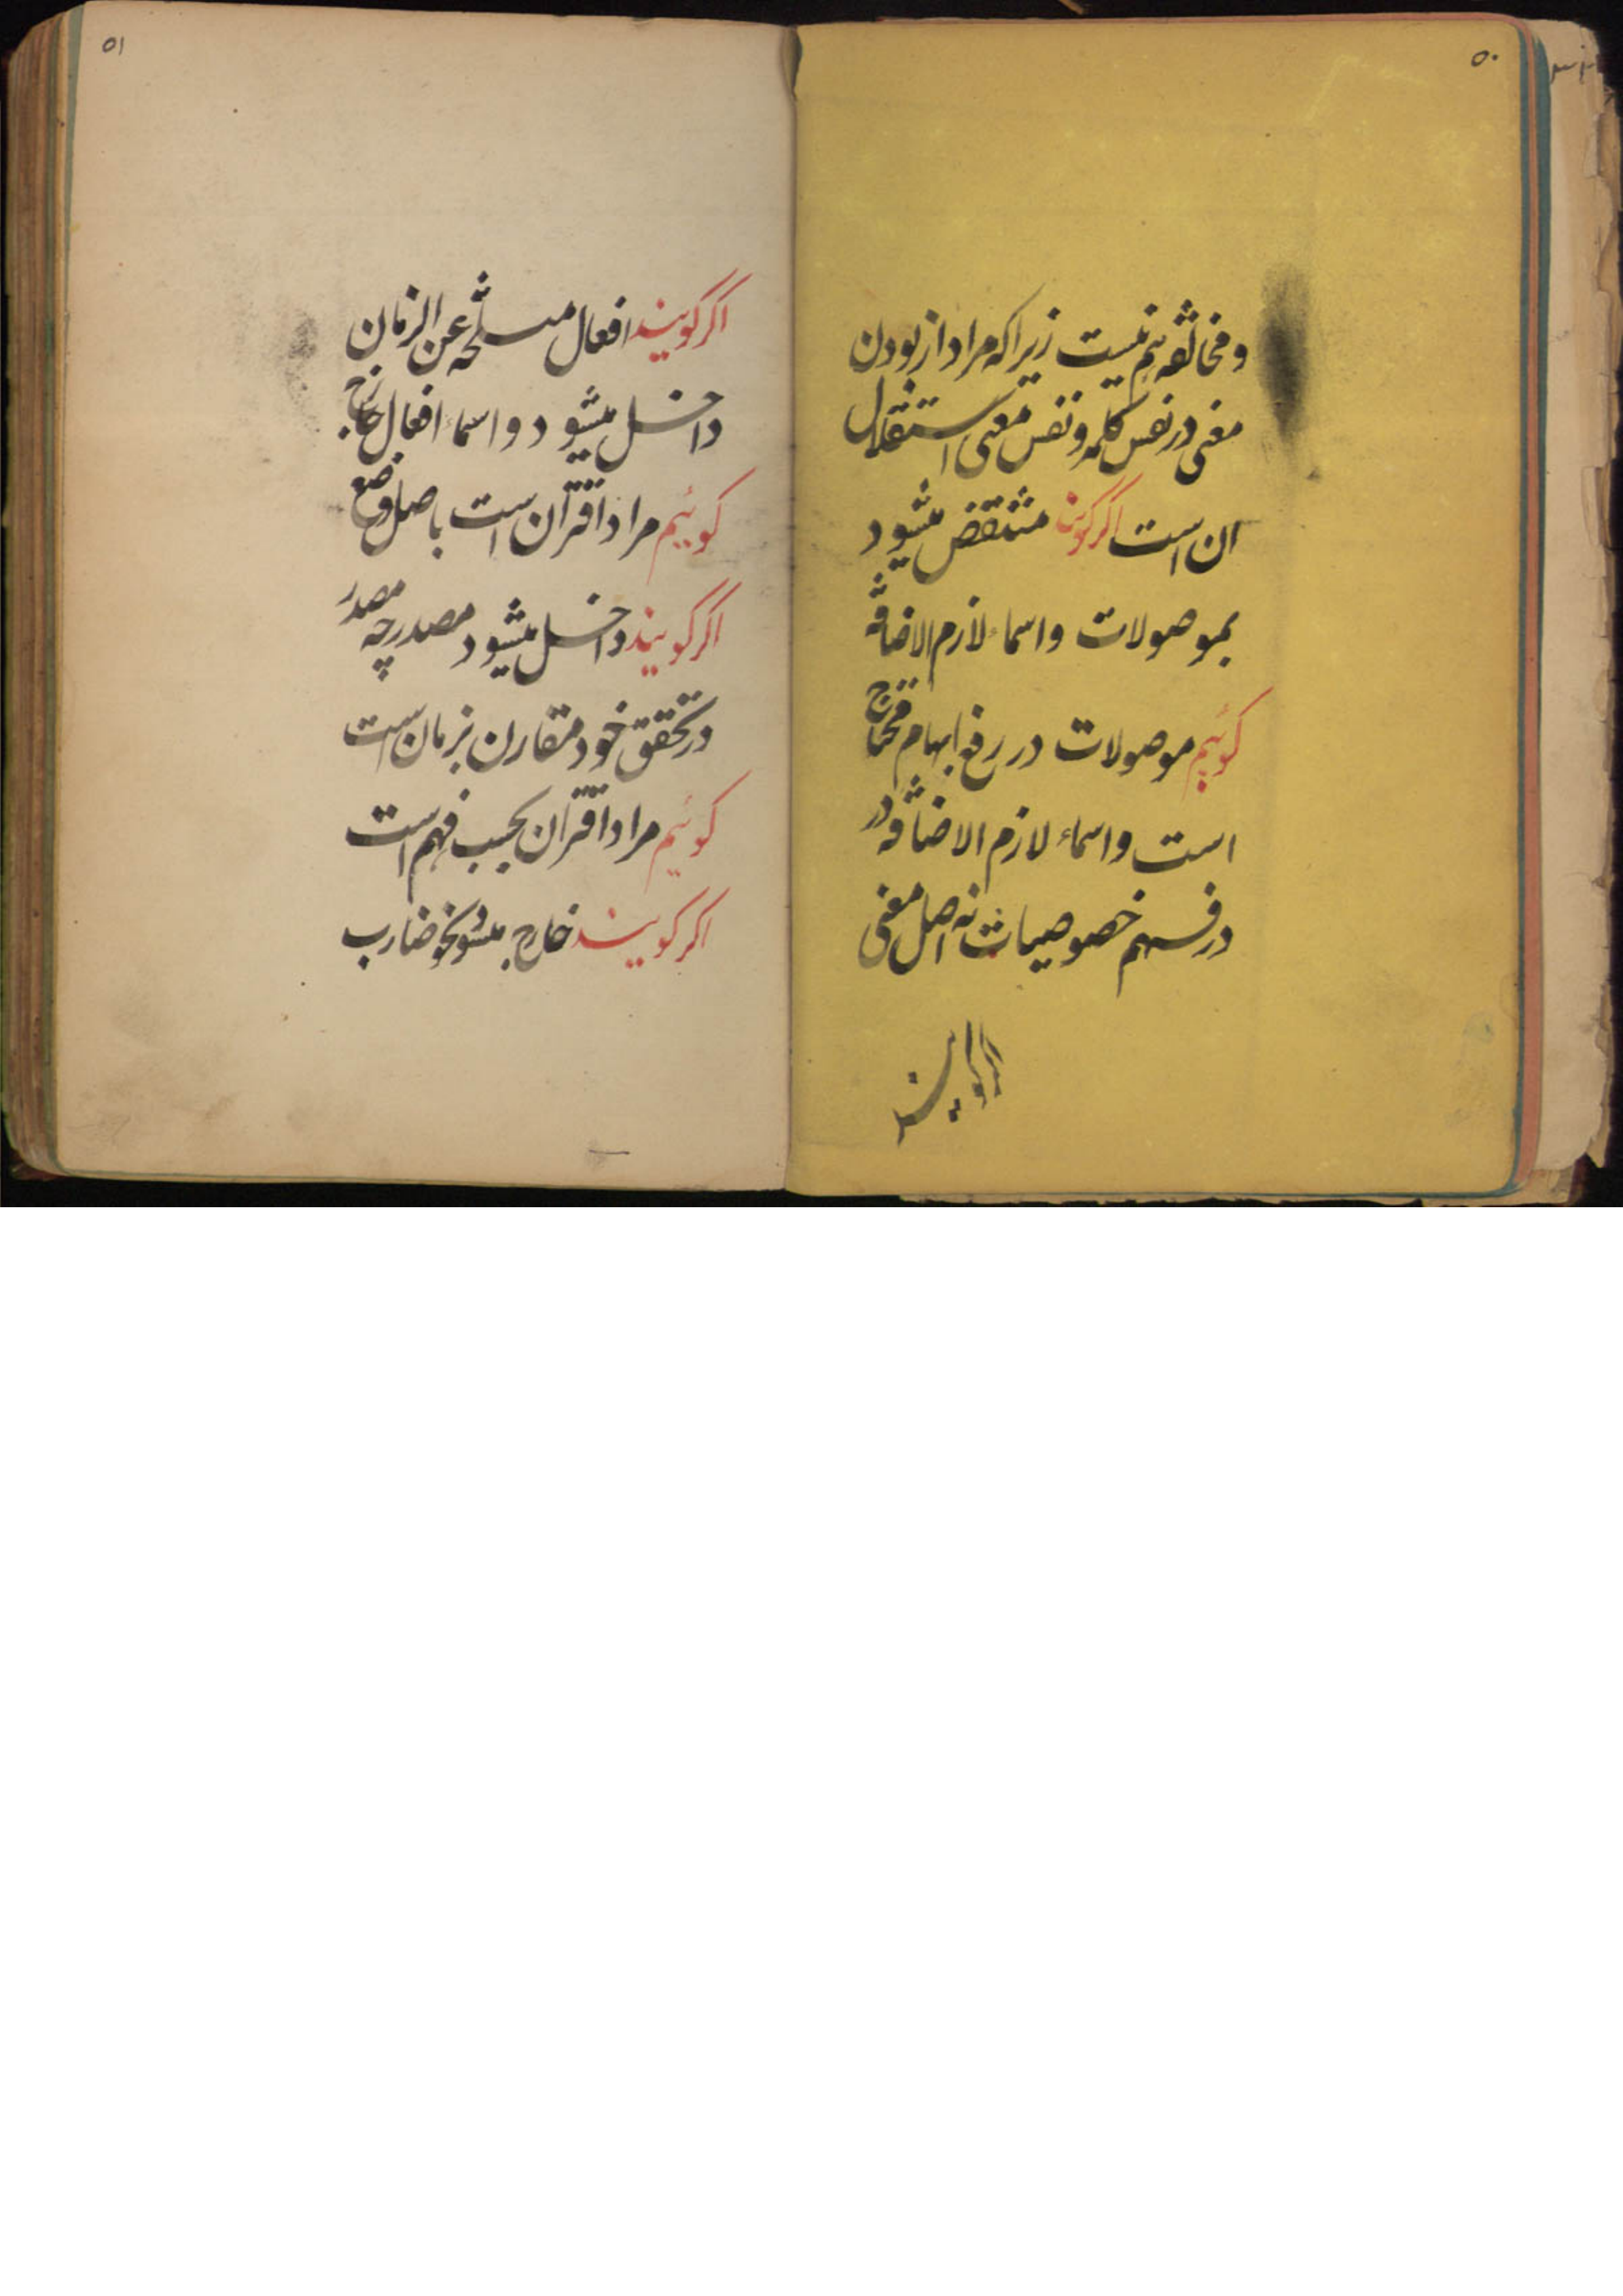 ۵۰
ومخالفه نیم نیست زیراکه مراد از بودن
معنی در نفس کلمه و نفس معنی استقلال
ان است اگر گویند منتقض میشود
بموصولات واسماء لازم الاضافه
کوئیم موصولات در رفع ابهام محتاج
است واسماء لازم الاضافه در
در فهم خصوصیات نه اصل معنی
اگر گویند
۵۱
اگر گویند افعال منسلخه عن الزمان
داخل میشود واسماء افعال خارج
کوئیم مراد اقتران است باصل وضع
اگر گویند داخل میشود مصدر چه مصدر
در تحقق خود مقارن بزمان است
کوئیم مراد اقتران بحسب فهم است
اگر گویند خارج میشود نحو ضارب